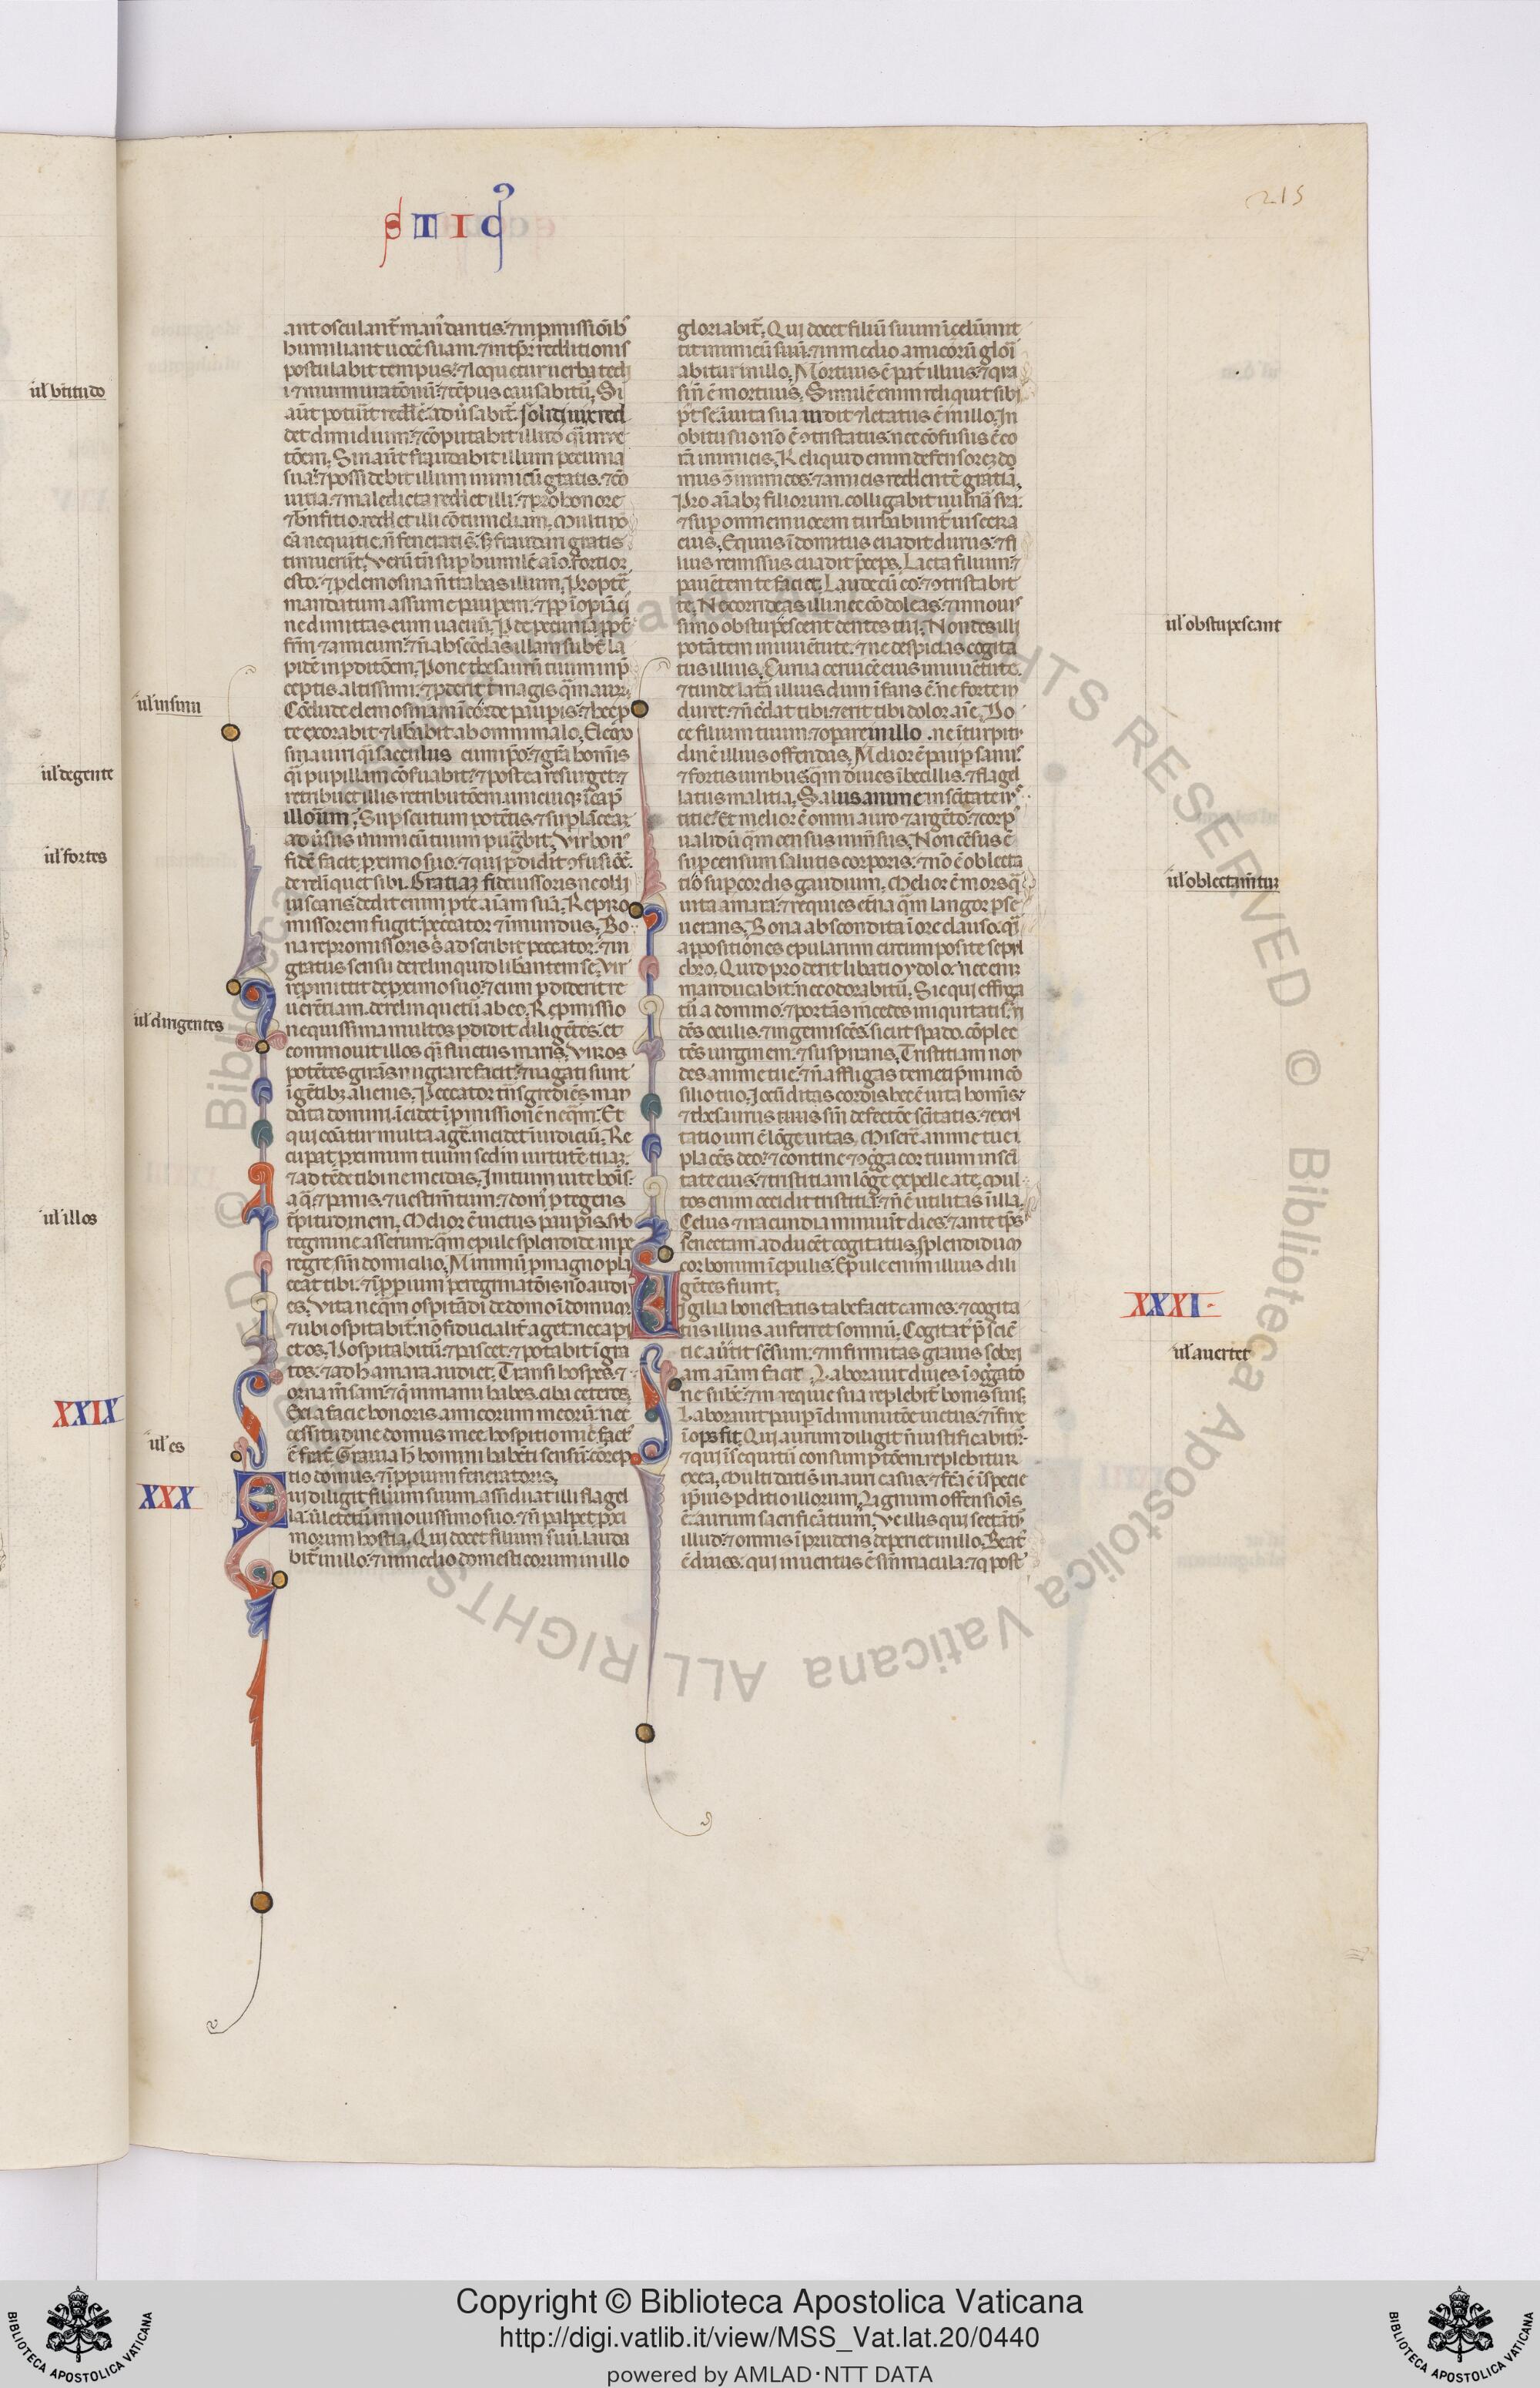 STICꝰ
215
ant osculant̃ manꝰ dantis. ⁊ in p̱missiõibꝰ
humiliant uocẽ suam. ⁊ in tp̃r redditionis
postulabit tempus. ⁊ loquetur uerba tedi
i ⁊ murmuratõnũ. ⁊ tẽpus causabit̃. Si
aũt potũit reddẽ. adusabit̃. solidi uix red
det dimidium. ⁊ cõputabit illud q̃si inue
tõem. Sin aũt fraudabit illum pecunia
sua. ⁊ possidebit illum inimicũ gratis. ⁊ cõ
uitia. ⁊ maledicta reddet illi. ⁊ pro honore
⁊ bñfitio. reddet illi cõtumeliam. Multi nõ
cã nequitie. ñ fenerati s̃. sꝫ fraudari gratis
timuerũt. Verũ tñ suꝑ humilẽ aĩo fortior
esto. ⁊ ꝑ elemosina ñ trahas illum. Propter̃
mandatum assume pauꝑem. ⁊ ꝓꝑ iopiã ei
ne dimittas eum uacuũ. Pde pecuniã ꝓpt̃
frẽm ⁊ amicum. ⁊ ñ abscõdas illam subt̃ la
pidẽ in ꝑditõem. Pone thesauꝝ tuum in p̃
ceptis altissimi. ⁊ ꝓderit t̃ magis q̃m auꝝ.
Cõclude elemosinam ĩ corde pauꝑis. ⁊ hec ꝓ
te exorabit. ⁊ libabit ab omni malo. Elemo
sina uiri q̃si sacculus cum ip̃o. ⁊ gr̃a homĩs
q̃si pupillam cõseruabit. ⁊ postea resurget. ⁊
retribuet illis retributõem. unicuiqꝫ ĩ cap̃
illoꝝ. Suꝑ scutum potẽtis. ⁊ suꝑ lãceaꝝ
aduersus inimicũ tuum pugbit. Vir bonꝰ
fidẽ facit ꝓximo suo. ⁊ qui ꝑdidit ꝯfusiõẽ.
derelinquet sibi. Gratiaꝫ fideiussoris ne obli
uiscaris. dedit enim ꝓ te aĩam suã. Repro
missorem fugit. peccator ⁊ ĩmundus. Bo
na repromissoris s̃ ad scribit peccator. ⁊ in
gratus sensu derelinquid libantem se. Vir
repmittit de ꝓximo suo. ⁊ cum ꝑdiderit re
uerẽtiam. derelinquetur̃ ab eo. Repmissio
nequissima multos ꝑdidit diligẽtes. et
commouit illos q̃si fluctus maris. Viros
potẽtes girãs migrare facit. ⁊ uagati sunt
ĩ gẽtibꝫ alienis. Peccator tñsgrediẽs man
data domini. ĩcidet ĩ ꝓmissionẽ neq̃m. Et
qui conatur multa agẽ. incidet in iudiciũ. Re
cupera ꝓximum tuum secdm uirtutẽ tuaꝝ.
⁊ adtẽde tibi ne incidas. Initium uite hoĩs.
aqua. ⁊ panis. ⁊ uestimtum. ⁊ domꝰ ꝓtegens
turpitudinem. Melior ẽ uictus pauꝑis sub
tegmine asserum. q̃m epule splendide in pe
regre. sin̄ domicilio. Minimũ ꝓ magno pla
ceat tibi. ⁊ ĩꝓꝑium peregrinatõis nõ audi
es. Vita neq̃m ospitãdi de domo ĩ domuꝝ
⁊ ubi ospitabit̃. nõ fiducialit̃ aget. nec api
et os. Hospitabitũ. ⁊ pascet. ⁊ potabit ĩgra
tos. ⁊ ad h̃ amara audiet. Transi hospes. ⁊
orna ñsam. ⁊ q̃ in manu habes. ciba ceteros.
Exi a facie honoris amicorum meorũ. nec
cessitudine domus mee. hospitio m̃ factꝰ
ẽ frat̃. Grauia h̃ homini habẽti sensũ. correp
tio domus. ⁊ ĩꝓꝑium feneratoris.
Qui diligit filium suum. assiduat illi flagel
la. ũ letet̃ in nouissimo suo. ⁊ ñ palpet ꝓxi
morum hostia. Qui docet filium suũ. lauda
bit̃ in illo. ⁊ in medio domesticorum in illo
gloriabit̃. Qui docet filiũ suum ĩ celũ mit
tit inimicũ suũ. ⁊ in medio amicorũ gloi
abitur in illo. Mortuus ẽ pat̃ illius. ⁊ qua
si ñ ẽ mortuus. Similẽ enim reliquit sibi
pt̃ se. in uita sua uidit ⁊ letatus ẽ in illo. In
obitu suo nõ ẽ ꝯtristatus. nec cõfusus ẽ co
rã inimicis. Reliquid enim defensorẽ do
mus ꝯ inimicos. ⁊ amicis reddentẽ gratiã.
Pro aĩabꝫ filiorum. colligabit uulnã sua.
⁊ suꝑ omnem uocem turbabunt̃ uiscera
eius. Equus ĩdomitus euadit durus. ⁊ fi
lius remissus euadit p̃ceps. Lacta filium. ⁊
pauẽtem te faciet. Lude cũ eo. ⁊ ꝯtristabit
te. Ne corrideas illi. nec cõdoleas. ⁊ in nouis
simo obstupescent dentes tui. Non des illi
potãtem in iuuẽtute. ⁊ ne despicias cogita
tus illius. Curua ceruicẽ eius in iuuẽtute.
⁊ tunde latã illius dum ĩfans ẽ. ne forte in
duret. ⁊ ñ c̃dat tibi. ⁊ erit tibi dolor aĩe. Do
ce filium tuum. ⁊ operare in illo. ne ĩ turpitu
dinẽ illius offendas. Melior ẽ pauꝑ sanus.
⁊ fortis uiribus. q̃m diues ĩbecillis. ⁊ flagel
latus malitia. Salus anime in scitate ius
titie. Et melior ẽ omni auro ⁊ argẽto. ⁊ corpꝰ
ualidũ q̃m census inmẽsus. Non cẽsus ẽ
suꝑ censum salutis corporis. ⁊ nõ ẽ oblecta
tio suꝑ cordis gaudium. Melior ẽ mors q̃
uita amara. ⁊ requies et̃na q̃m langor ꝑse
uerans. Bona abscondita ĩ ore clauso. q̃si
appositiones epularum circum posite sepul
chro. Quid proderit libatio ydolo. nec enĩ
manducabit. nec odorabit̃. Sic qui effuga
tur̃ a domino. ⁊ portãs ñcedes iniquitatis. ui
dẽs oculis. ⁊ ingemiscẽs. sicut spado. cõplec
tẽs uirginem. ⁊ suspirans. Tristitiam non
des anime tue. ⁊ ñ affligas temetip̃m in cõ
silio tuo. Iocũditas cordis hec ẽ uita homĩs.
⁊ thesaurus sin̄ defectõe scitatis. ⁊ exul
tatio uiri ẽ lõgeuitas. Miserẽ anime tue
placẽs deo. ⁊ contine ⁊ ꝯgrega cor tuum in sci
tate eius. ⁊ tristitiam lõge expelle a te. Mul
tos enim occidit tristitia. ⁊ ñ ẽ utilitas ĩ illa.
Celus ⁊ iracundia minuũt dies. ⁊ ante tp̃s
senectam adducẽt cogitatus. splendidum
cor bonum ĩ epulis. Epule enim illius dili
gẽtes fiunt.
Vigilia honestatis tabefacit carnes. ⁊ cogita
tus illius auferret somnũ. Cogitatꝰ p̃sciẽ
tie aũtit sẽsum. ⁊ infirmitas grauis sobri
am aĩam facit. Laborauit diues ĩ ꝯgratõ
ne subẽ. ⁊ in requie sua replebit̃ bonis suis.
Laborauit pauꝑ ĩ diminutõe uictus. ⁊ ĩ fine
ĩops fit. Qui aurum diligit ñ iustificabitur̃.
⁊ qui ĩsequitũ consumptõem. replebitur
ex ea. Multi dati s̃ in auri casus. ⁊ fca ẽ ĩ specie
ip̃ius ꝑditio illorum. Lignum offensiõis
ẽ aurum sacrificãtium. Ve illis qui sectãt̃
illud. ⁊ omnis ĩprudens deperiet in illo. Beatꝰ
ẽ diues. qui inuentus ẽ sin̄ macula. ⁊ q̃ post
ul̃ btitudo
ul̃ in sinu
ul̃ degente
ul̃ fortes
ul̃ dirigentes
ul̃ illos
XXIX
ul̃ es
XXX
ul̃ obstupescant
ul̃ oblectamtur
XXXI
ul̃ auertet
© Biblioteca Apostolica Vaticana ALL RIGHTS RESERVED
Copyright © Biblioteca Apostolica Vaticana
http://digi.vatlib.it/view/MSS_Vat.lat.20/0440
powered by AMLAD·NTT DATA
BIBLIOTECA APOSTOLICA VATICANA
BIBLIOTECA APOSTOLICA VATICANA